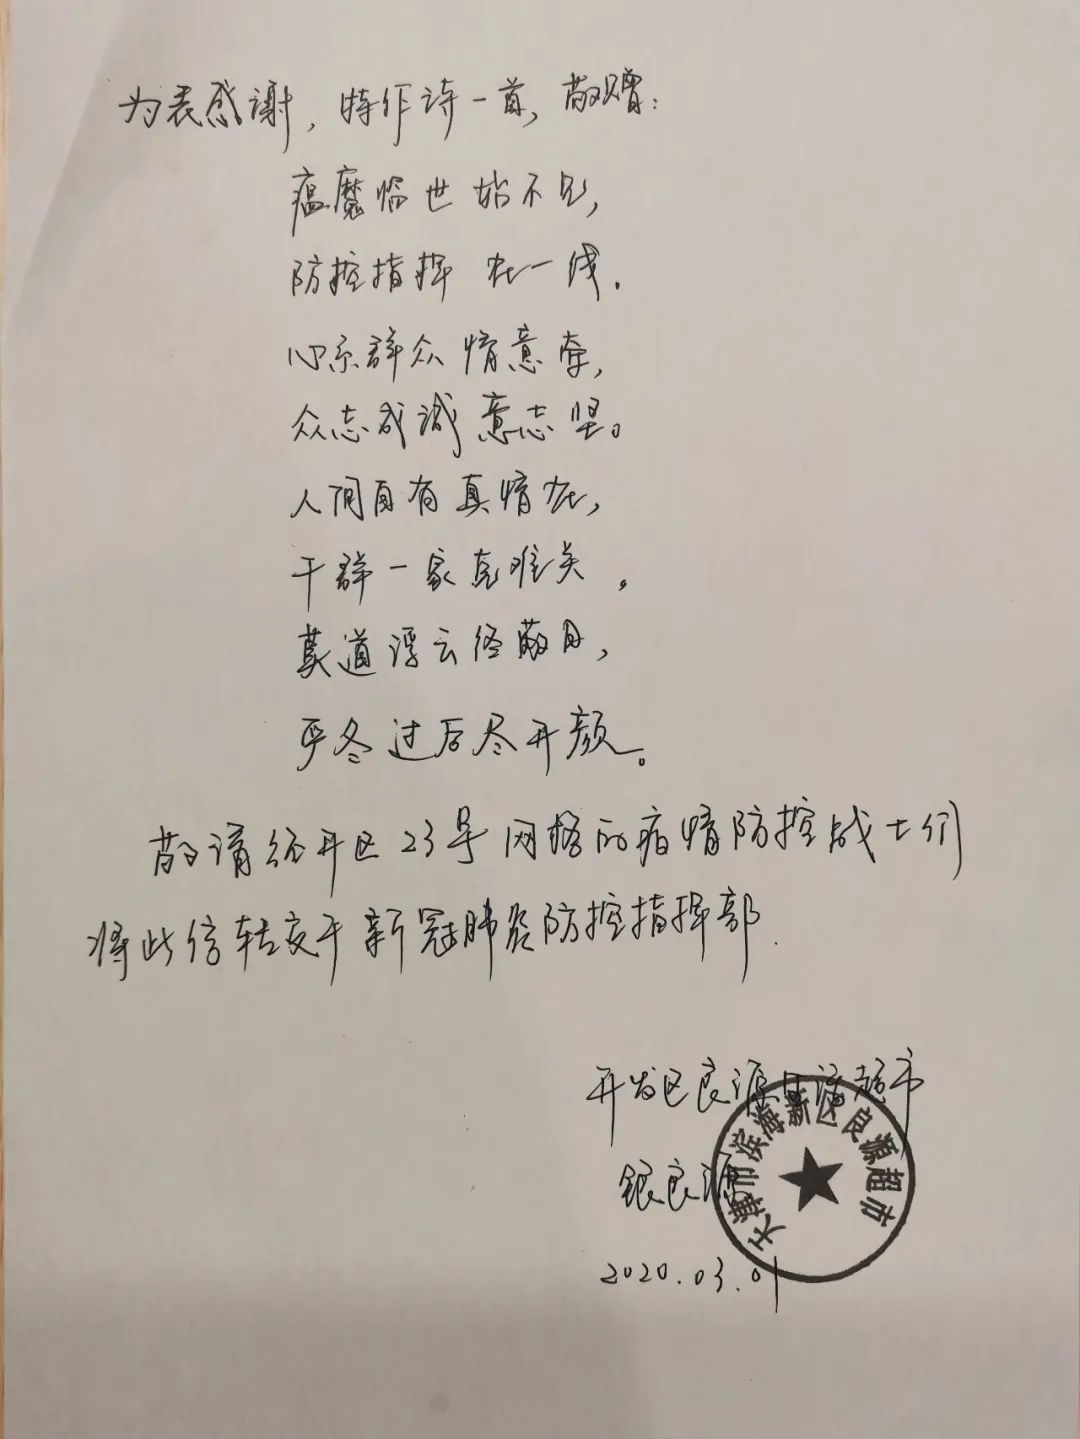 为表感谢，特作诗一首，敬赠：
瘟魔临世始不见，
防控指挥在一线．
心系群众情意牵，
众志成诚意志坚。
人间自有真情在，
干群一家克难关，
莫道浮云终蔽日，
严冬过后尽开颜。
敬请经开区23号网格的疫情防控战士们
将此信转交于新冠肺炎防控指挥部．
开发区良源生活超市
银良源
2020.03.01
天津市滨海新区良源超市